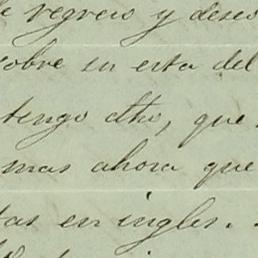 de regreso y deseo
sobre su esta del
tengo dho, que
mas ahora que
tas en ingles.